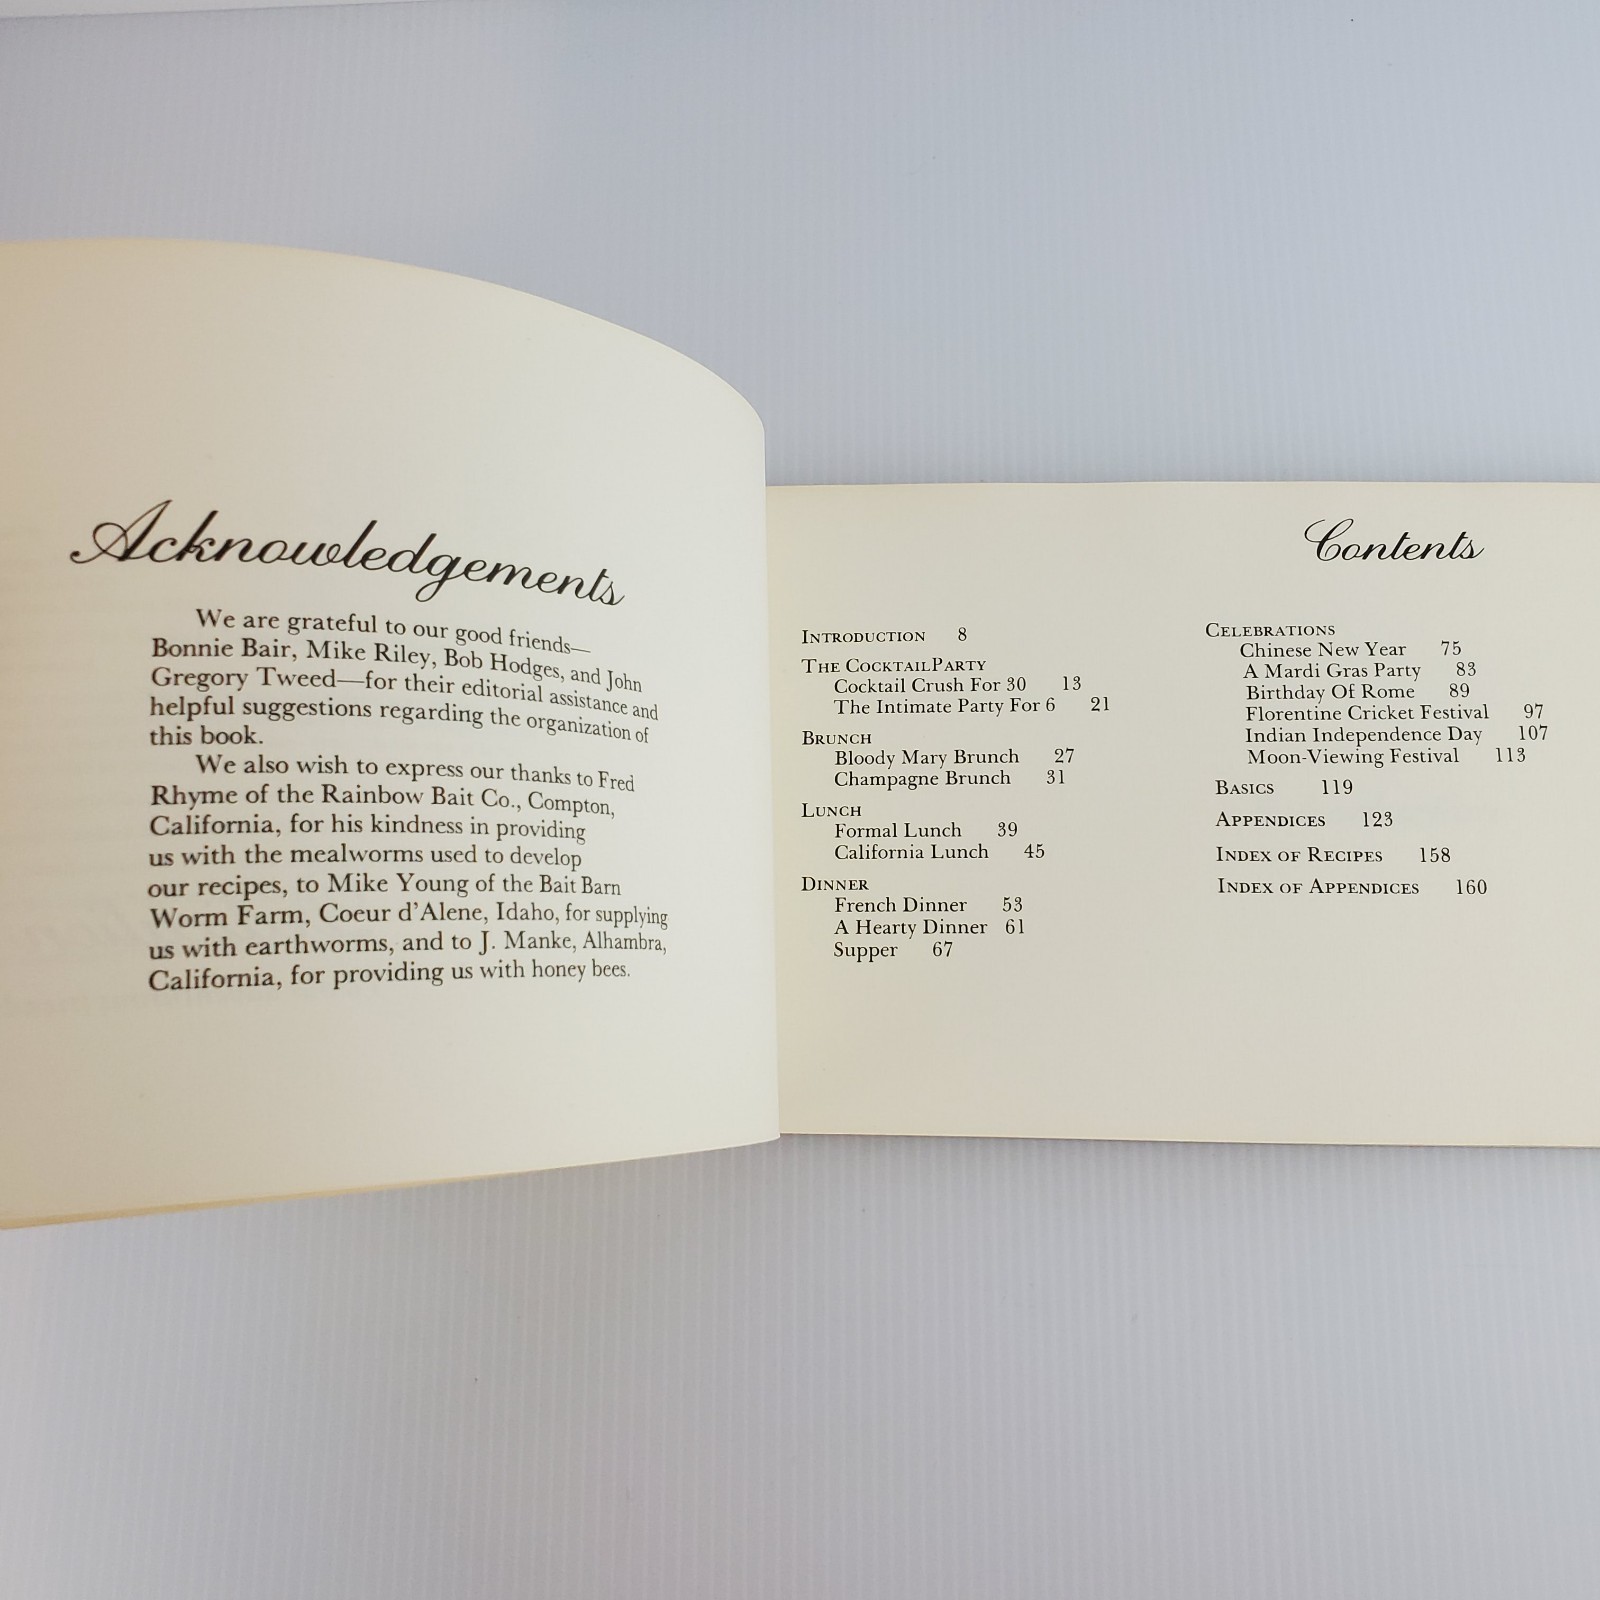 Acknowledgements
We are grateful to our good friends—
Bonnie Bair, Mike Riley, Bob Hodges, and John
Gregory Tweed—for their editorial assistance and
helpful suggestions regarding the organization of
this book.
We also wish to express our thanks to Fred
Rhyme of the Rainbow Bait Co., Compton,
California, for his kindness in providing
us with the mealworms used to develop
our recipes, to Mike Young of the Bait Barn
Worm Farm, Coeur d'Alene, Idaho, for supplying
us with earthworms, and to J. Manke, Alhambra,
California, for providing us with honey bees.
Contents
INTRODUCTION 8
THE COCKTAIL PARTY
Cocktail Crush For 30 13
The Intimate Party For 6 21
BRUNCH
Bloody Mary Brunch 27
Champagne Brunch 31
LUNCH
Formal Lunch 39
California Lunch 45
DINNER
French Dinner 53
A Hearty Dinner 61
Supper 67
CELEBRATIONS
Chinese New Year 75
A Mardi Gras Party 83
Birthday Of Rome 89
Florentine Cricket Festival 97
Indian Independence Day 107
Moon-Viewing Festival 113
BASICS 119
APPENDICES 123
INDEX OF RECIPES 158
INDEX OF APPENDICES 160